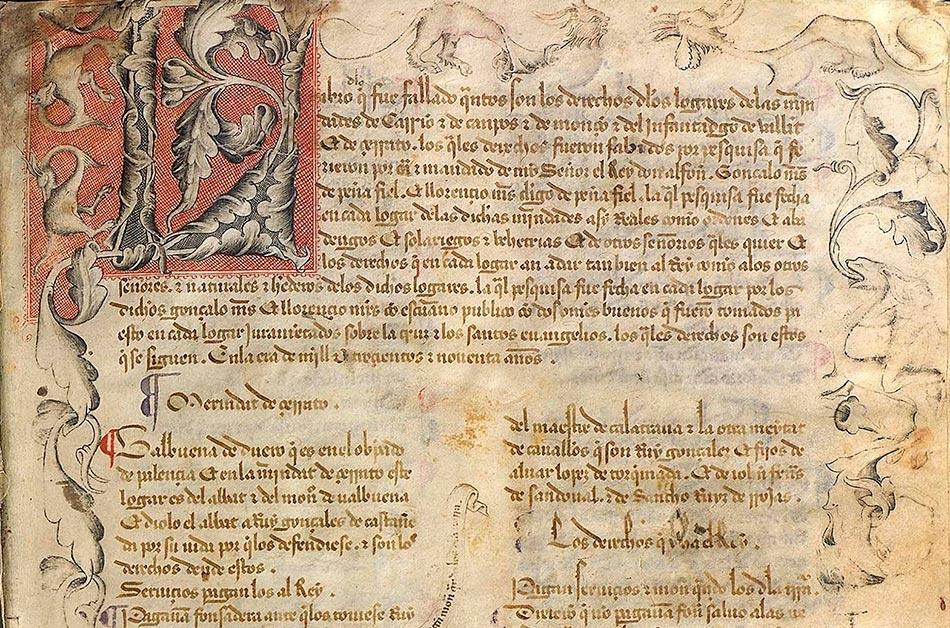 Libro q̃ fue fallado q̃ntos son los derechos dlos logares de las mỹn
dades de Carrio τ de canpos τ de monçõ τ del Infantadgo de vallit
Et de çerrato. los q̃les derechos fueron sabidos por pesquisa q̃ fe
zieron por τ mandado de nro Señor el Rey don alfon. Goncalo mrs
de peña fiel. Et llorencio mrs cligo de peña fiel. la q̃l pesquisa fue fecha
en cada logar de las dichas mỹndades asy Reales como ordenes Et aba
dengos Et solariegos τ behetrias Et de otros señorios q̃les quier Et
los derechos q̃ en cada logar an adar tanbien al Rey como alos otros
señores. τ naturales τ hederos delos dichos logares. la q̃l pesquisa fue fecha en cada logar por los
dichos gonçalo mrs Et llorencio mrs cõ escriuano publico cõ dos omes buenos q̃ fuerõ tomados pa
esto en cada logar Juramẽtados sobre la cruz τ los santos euangelios. los q̃les derechos son estos
q̃ se siguen. En la era de mill Et trezentos τ nouenta años.
Merindat de çerrato.
Valbuena de duero q̃ es en el obpado
de palençia Et en la mỹndat de çerrato este
logar es del abbat τ del mon de valbuena
Et diolo el abbat a Ruy gonçales de castañe
da por su vida por q̃ los defendiese. τ son los
derechos dende estos.
Seruicios pagan los al Rey.
Pagauã fonsadera ante q̃ los touiese Ruy
del maestre de calatraua τ la otra meytat
de cauallos q̃ son Ruy gonçales Et fijos de
aluar lopez de torquemada. Et de iohñ ferrs
de sandoual. τ de Sancho Ruyz de rrojas.
Los derechos q̃ y ha el Rey.
Pagan seruiçios τ mon q̃ndo los dla trra.
Dixerõ q̃ nõ pagauã fon saluo a las